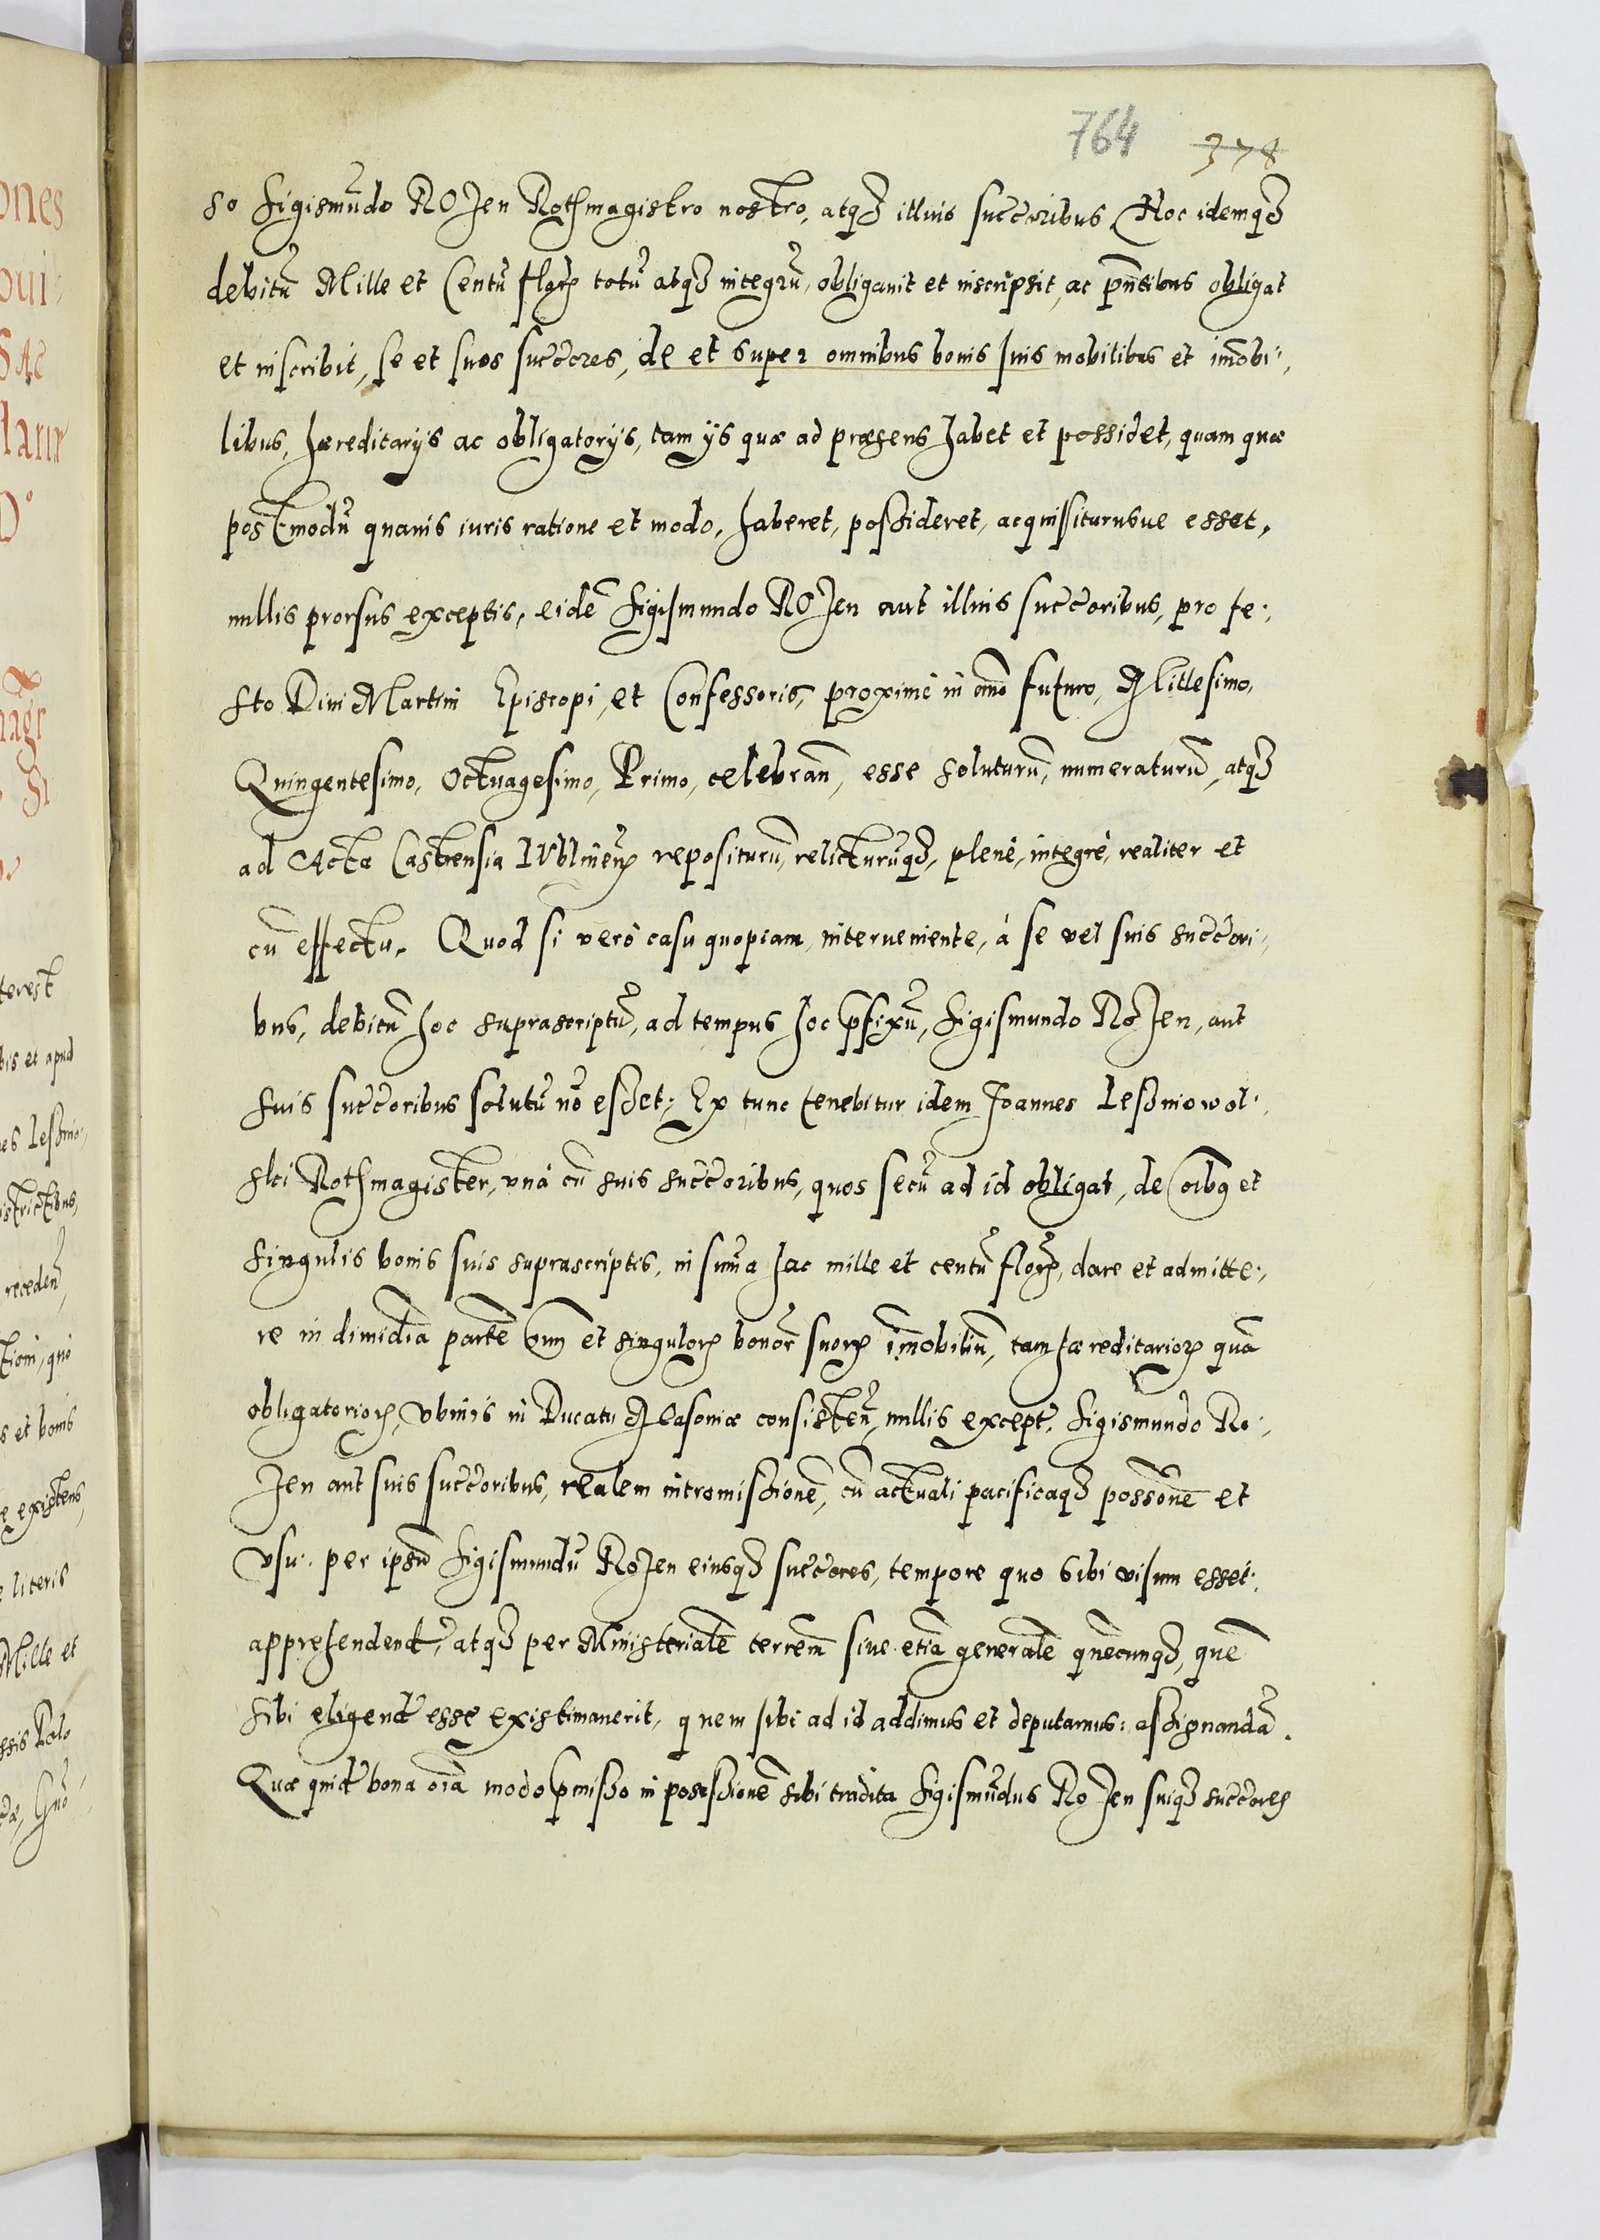 764 378
so Sigismũdo ROZen Rothmagistro nostro, atqȝ illius succoribus. Hoc idemqȝ
debitũ Mille et Centũ florꝝ totũ atqȝ integrũ, obligauit et inscripsit, ac pñtibus obligat
et inscribit, se et suos succores, de et super omnibus bonis suis mobilibus et im̃obi:
libus, hæreditarijs ac obligatorijs, tam ijs quæ ad præsens habet et possidet, quam quæ
postmodũ quauis iuris ratione et modo, haberet, possideret, acquisiturusue esset,
nullis prorsus exceptis, eidẽ Sigismundo ROZen aut illius succoribus, pro fe:
sto Diui Martini Episcopi, et Confessoris, proximè in anno futuro, Millesimo,
Quingentesimo, Octuagesimo, Primo, celebrañ, esse soluturũ, numeraturũ, atqȝ
ad Acta Castrensia lVblineñ repositurũ, relicturũqȝ, plenè, integrè, realiter et
cũ effectu. Quod si verò casu quopiam, interueniente, à se vel suis succori:
bus, debitũ hoc suprascriptũ, ad tempus hoc p̃fixũ, Sigismundo RoZen, aut
suis succoribus solutũ nõ esset; Ex tunc tenebitur idem Joannes Lesniowol:
ski Rothmagister, vnà cũ suis succoribus, quos secũ ad id obligat, de oĩbꝫ et
singulis bonis suis suprascriptis, in sum̃a hac mille et centũ florꝝ, dare et admitte:
re in dimidiã partẽ oĩm et singulorꝝ bonorꝝ suorꝝ im̃obiliũ, tam hæreditariorꝝ quã
obligatoriorꝝ, vbiuis in Ducatu Masoniæ consisteñ, nullis except. Sigismundo Ro:
Zen aut suis succoribus, realem intromissionẽ, cũ actuali pacificaqȝ possonẽ et
vsu: per ipsũ Sigismundũ RoZen eiusqȝ succores, tempore quo sibi visum esset:
apprehendend, atqȝ per Ministerialẽ terrem̃ siue etiã generalẽ quẽcunqȝ, quẽ
sibi eligend esse existimauerit, quem sibi ad id addimus et deputamus: assignandã.
Quæ quid bona oĩa modo p̃misso in possessionẽ sibi tradita Sigismũdus RoZen suiqȝ succores